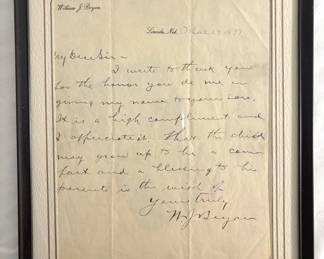 William J. Bryan
Lincoln, Neb.
My Dear Sir -
I write to thank you
for the honor you do me in
giving my name to your son.
It is a high compliment and
I appreciate it. That the child
may grow up to be a com
fort and a blessing to his
parents is the wish of
Yours truly
W J Bryan